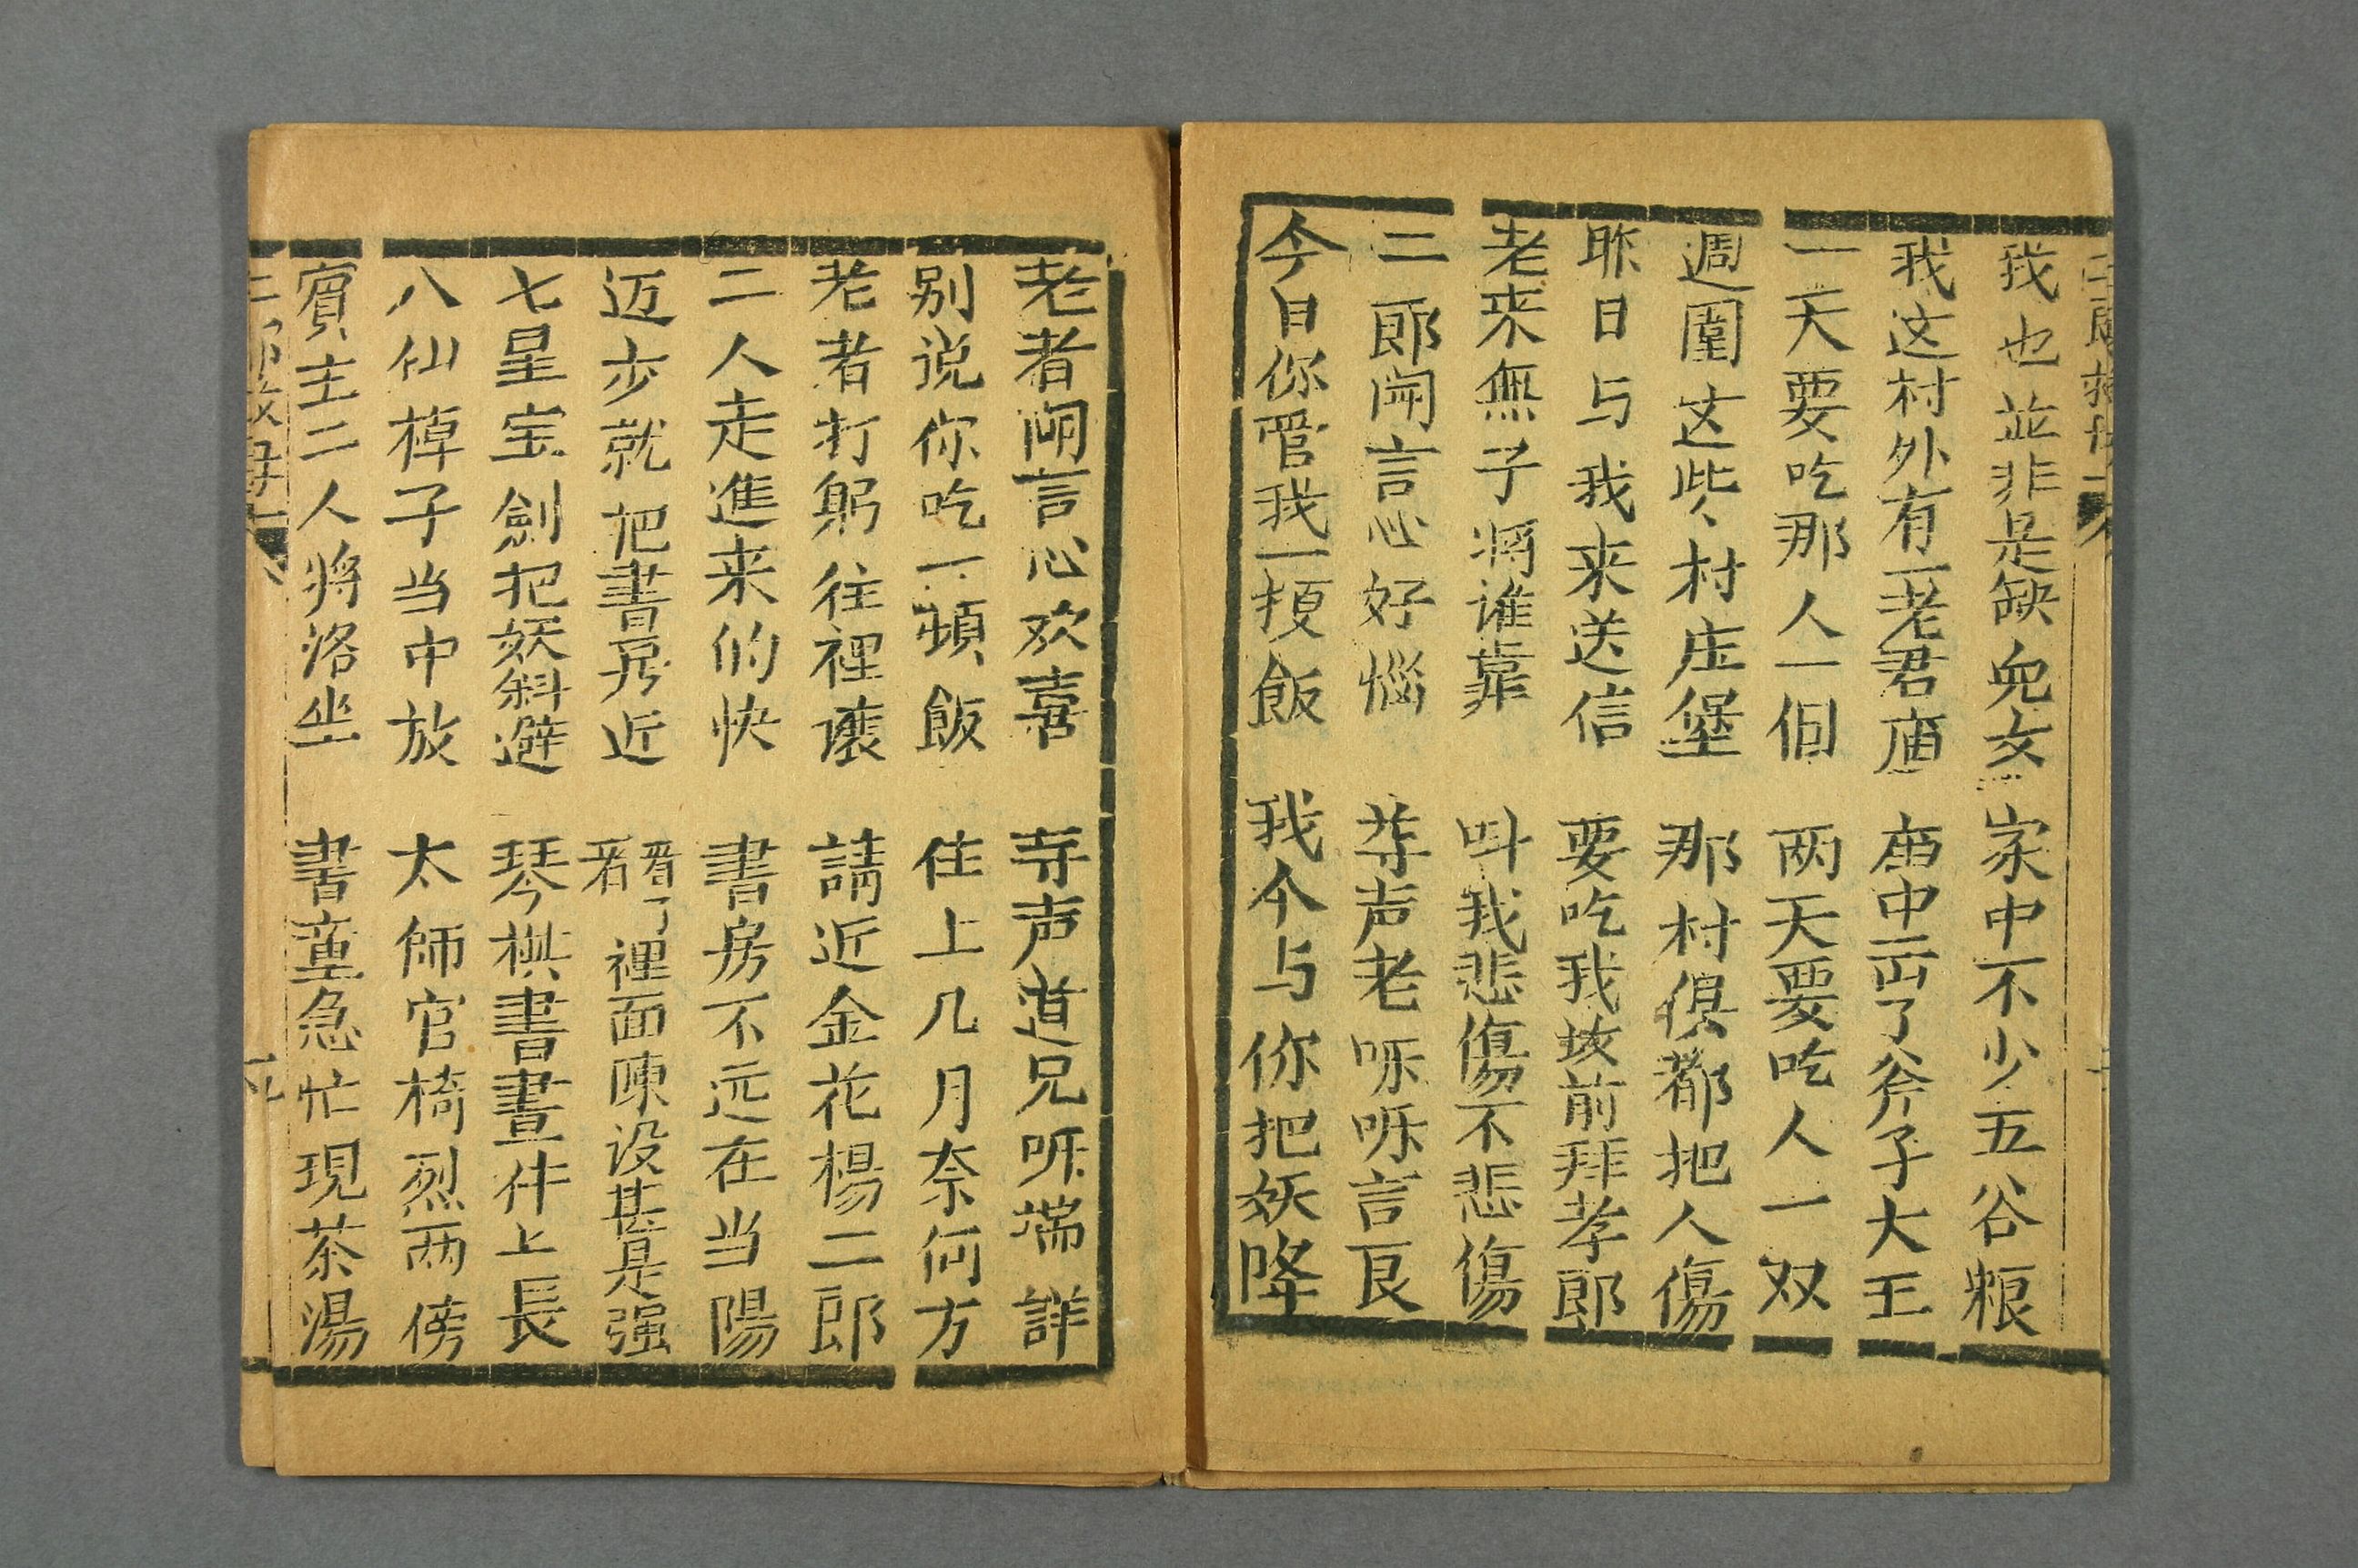 我也並非是缺兒女 家中不少五谷粮
我这村外有一老君庙 庙中出了斧子大王
一天要吃那人一個 两天要吃人一双
週圍这些村庄堡 那村俱都把人傷
昨日与我来送信 要吃我孩前拜孝郎
老来無子将谁靠 呌我悲傷不悲傷
二郎闻言心好惱 尊声老哌哌言良
今日你管我一頓飯 我今与你把妖降
老者闻言心欢喜 尊声道兄哌端詳
别说你吃一頓飯 住上几月奈何方
老者打躬往裡讓 請近金花楊二郎
二人走進来的快 書房不远在当陽
迈步就把書房近 看了看裡面陳设甚是强
七星宝劍把妖斜避 琴棋書畫件上長
八仙棹子当中放 太師官椅烈两傍
賓主二人将洛坐 書童急忙現茶湯
二郎救母